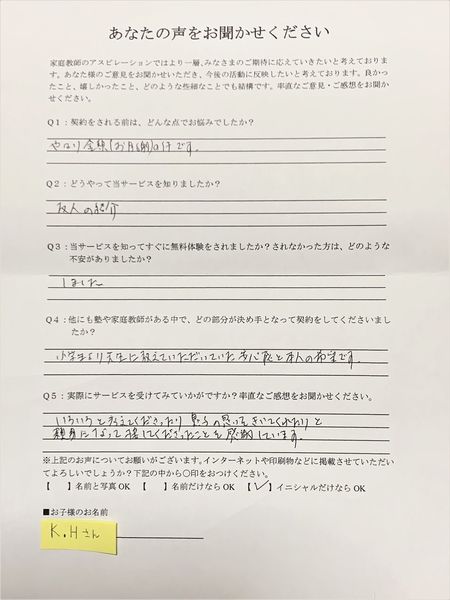 あなたの声をお聞かせください
家庭教師のアスピレーションではより一層、みなさまのご期待に応えていきたいと考えておりま
す。あなた様のご意見をお聞かせいただき、今後の活動に反映したいと考えております。良かっ
たこと、嬉しかったこと、どのような些細なことでも結構です。率直なご意見・ご感想をお聞か
せください。
Q1：契約をされる前は、どんな点でお悩みでしたか？
やはり金額(お月謝)の件です。
Q2：どうやって当サービスを知りましたか？
友人の紹介
Q3：当サービスを知ってすぐに無料体験をされましたか？されなかった方は、どのような
不安がありましたか？
しました
Q4：他にも塾や家庭教師がある中で、どの部分が決め手となって契約をしてくださいまし
たか？
小学生より先生に教えていただいていた安心感と本人の希望です。
Q5：実際にサービスを受けてみていかがですか？率直なご感想をお聞かせください。
いろいろと考えてくださったり息子の思いをきいてくれたりと
親身になって接してくださったことを感謝しています。
※上記のお声についてお願いがございます。インターネットや印刷物などに掲載させていただい
てよろしいでしょうか？下記の中から○印をおつけください。
【　】名前と写真OK 【　】名前だけならOK 【✓】イニシャルだけならOK
■お子様のお名前
K.Hさん